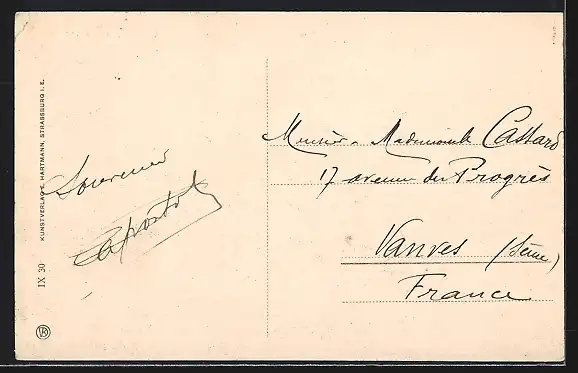 KUNSTVERLAG E. HARTMANN, STRASSBURG I. E.
IX 30
Souvenir
Monsieur Mademoiselle Cassard
17 avenue du Progrès
Vanves (Seine)
France